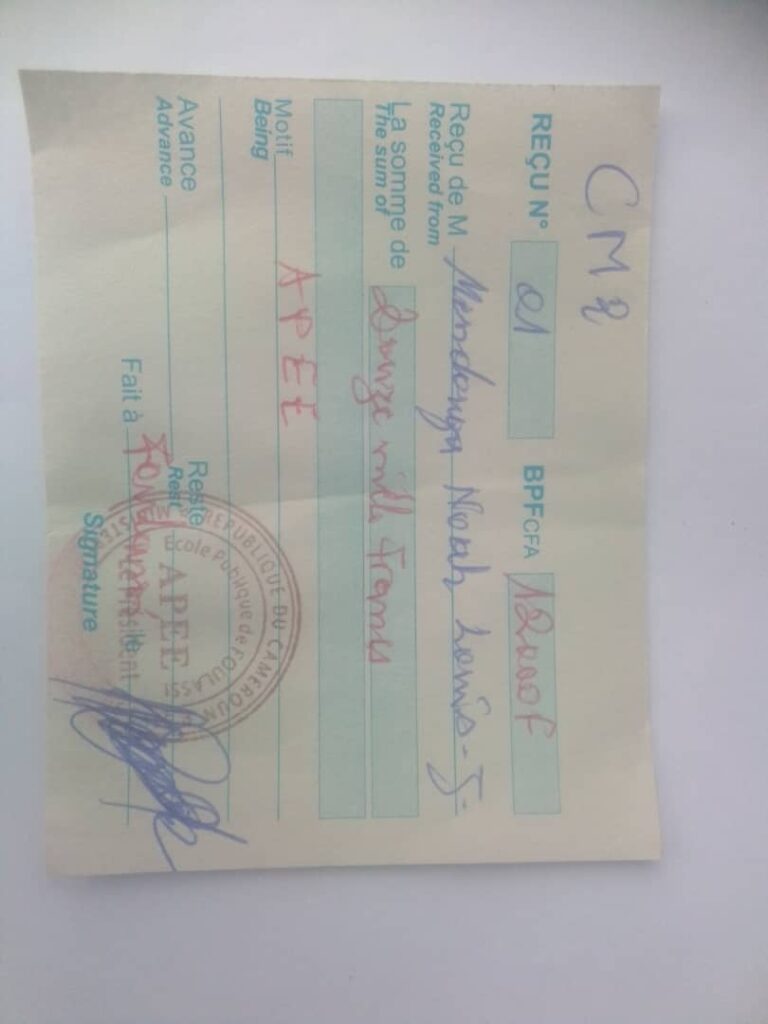 CM2
REÇU N° 01 BPF CFA 12000F
Reçu de M Mendonga Noah Louis-J.
Received from
La somme de Douze mille francs
The sum of
Motif APEE
Being
Avance Reste
Advance Rest
Fait à
Signature
REPUBLIQUE DU CAMEROUN
Ecole Publique de FOULASSI
APEE
Le Président